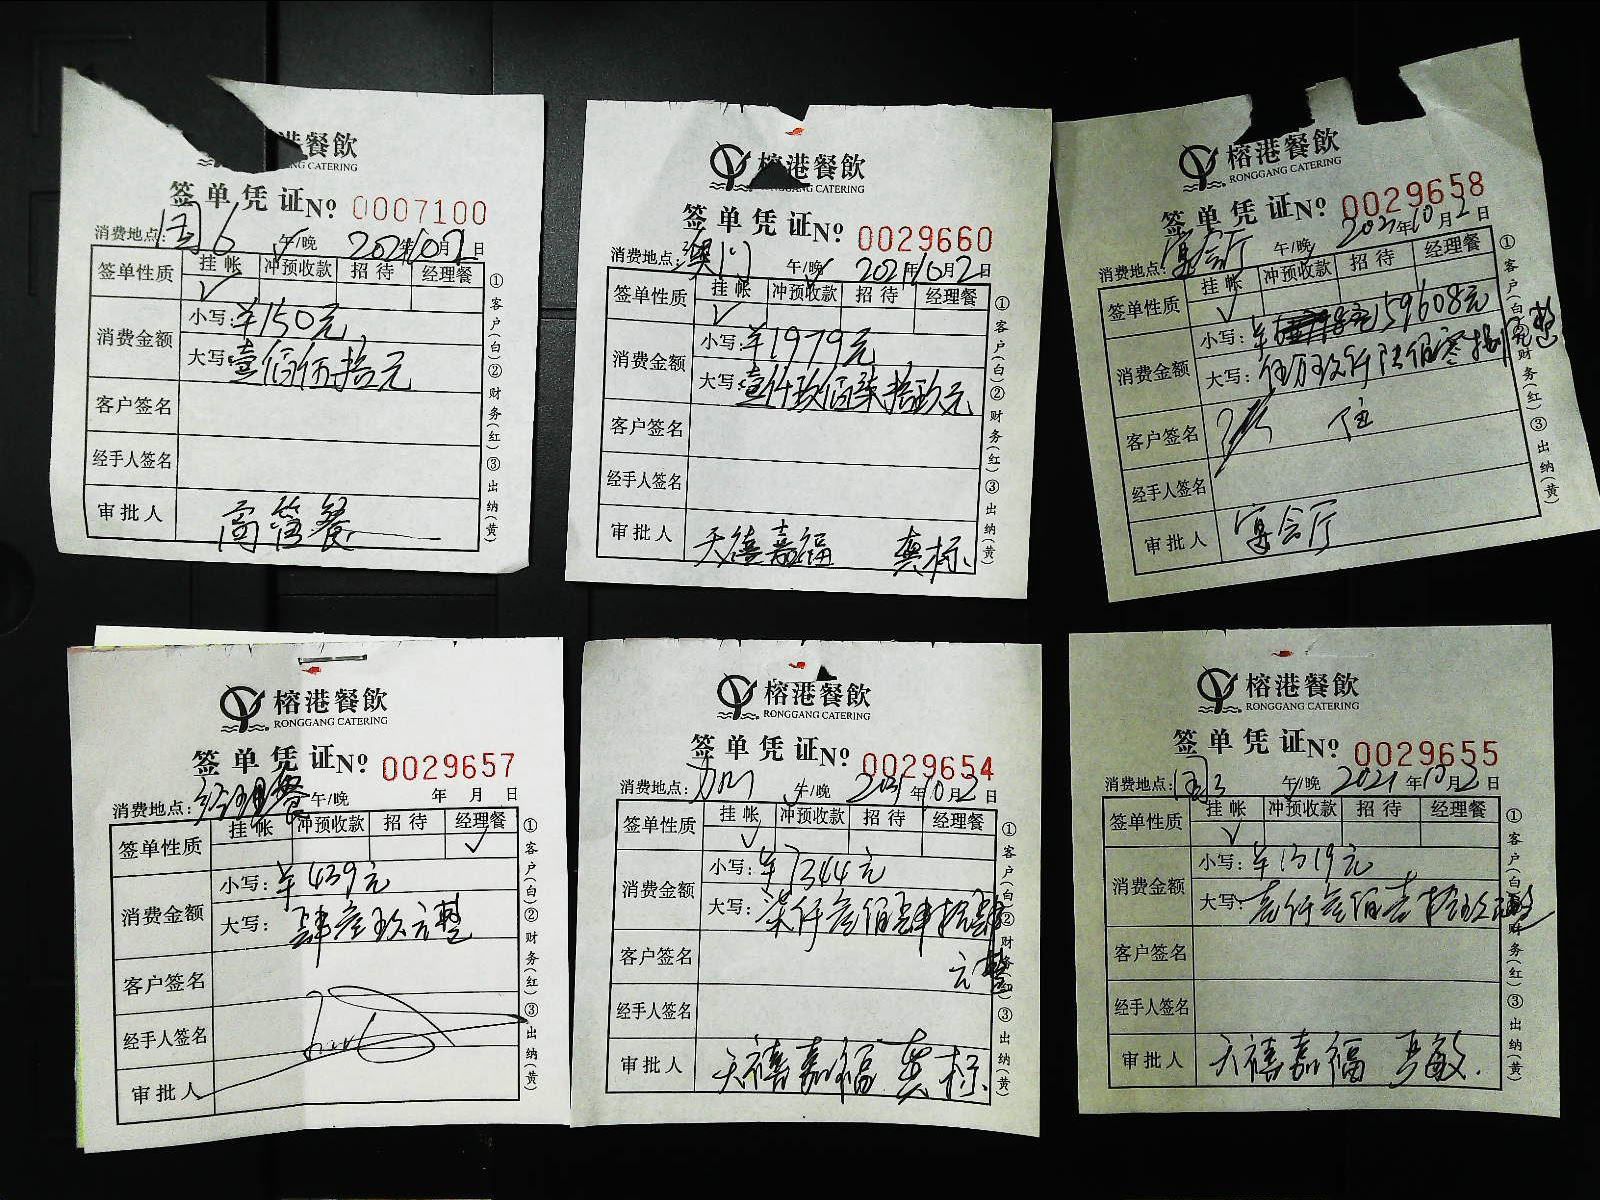 港餐飲
CATERING
签单凭证 № 0007100
消费地点: 国6 午/晚 2021年10月2日
签单性质 挂帐 冲预收款 招待 经理餐
消费金额 小写: ¥150元
大写: 壹佰伍拾元
客户签名
经手人签名
审批人 高管餐
①客户(白)②财务(红)③出纳(黄)
榕港餐飲
RONGGANG CATERING
签单凭证 № 0029660
消费地点: 澳门 午/晚 2021年10月2日
签单性质 挂帐 冲预收款 招待 经理餐
消费金额 小写: ¥1979元
大写: 壹仟玖佰柒拾玖元
客户签名
经手人签名
审批人 天禧嘉福
①客户(白)②财务(红)③出纳(黄)
榕港餐飲
RONGGANG CATERING
签单凭证 № 0029658
消费地点: 宴会厅 午/晚 2021年10月2日
签单性质 挂帐 冲预收款 招待 经理餐
消费金额 小写: ¥59608元
大写: 伍万玖仟陆佰零捌元整
客户签名
经手人签名
审批人 宴会厅
①客户(白)②财务(红)③出纳(黄)
榕港餐飲
RONGGANG CATERING
签单凭证 № 0029657
消费地点: 经理餐 午/晚 年 月 日
签单性质 挂帐 冲预收款 招待 经理餐
消费金额 小写: ¥439元
大写: 肆叁玖元整
客户签名
经手人签名
审批人
①客户(白)②财务(红)③出纳(黄)
榕港餐飲
RONGGANG CATERING
签单凭证 № 0029654
消费地点: 午/晚 2021年10月2日
签单性质 挂帐 冲预收款 招待 经理餐
消费金额 小写: ¥7344元
大写: 柒仟叁佰肆拾肆
元整
客户签名
经手人签名
审批人 天禧嘉福
①客户(白)②财务(红)③出纳(黄)
榕港餐飲
RONGGANG CATERING
签单凭证 № 0029655
消费地点: 国3 午/晚 2021年10月2日
签单性质 挂帐 冲预收款 招待 经理餐
消费金额 小写: ¥1319元
大写: 壹仟叁佰壹拾玖元整
客户签名
经手人签名
审批人 天禧嘉福
①客户(白)②财务(红)③出纳(黄)